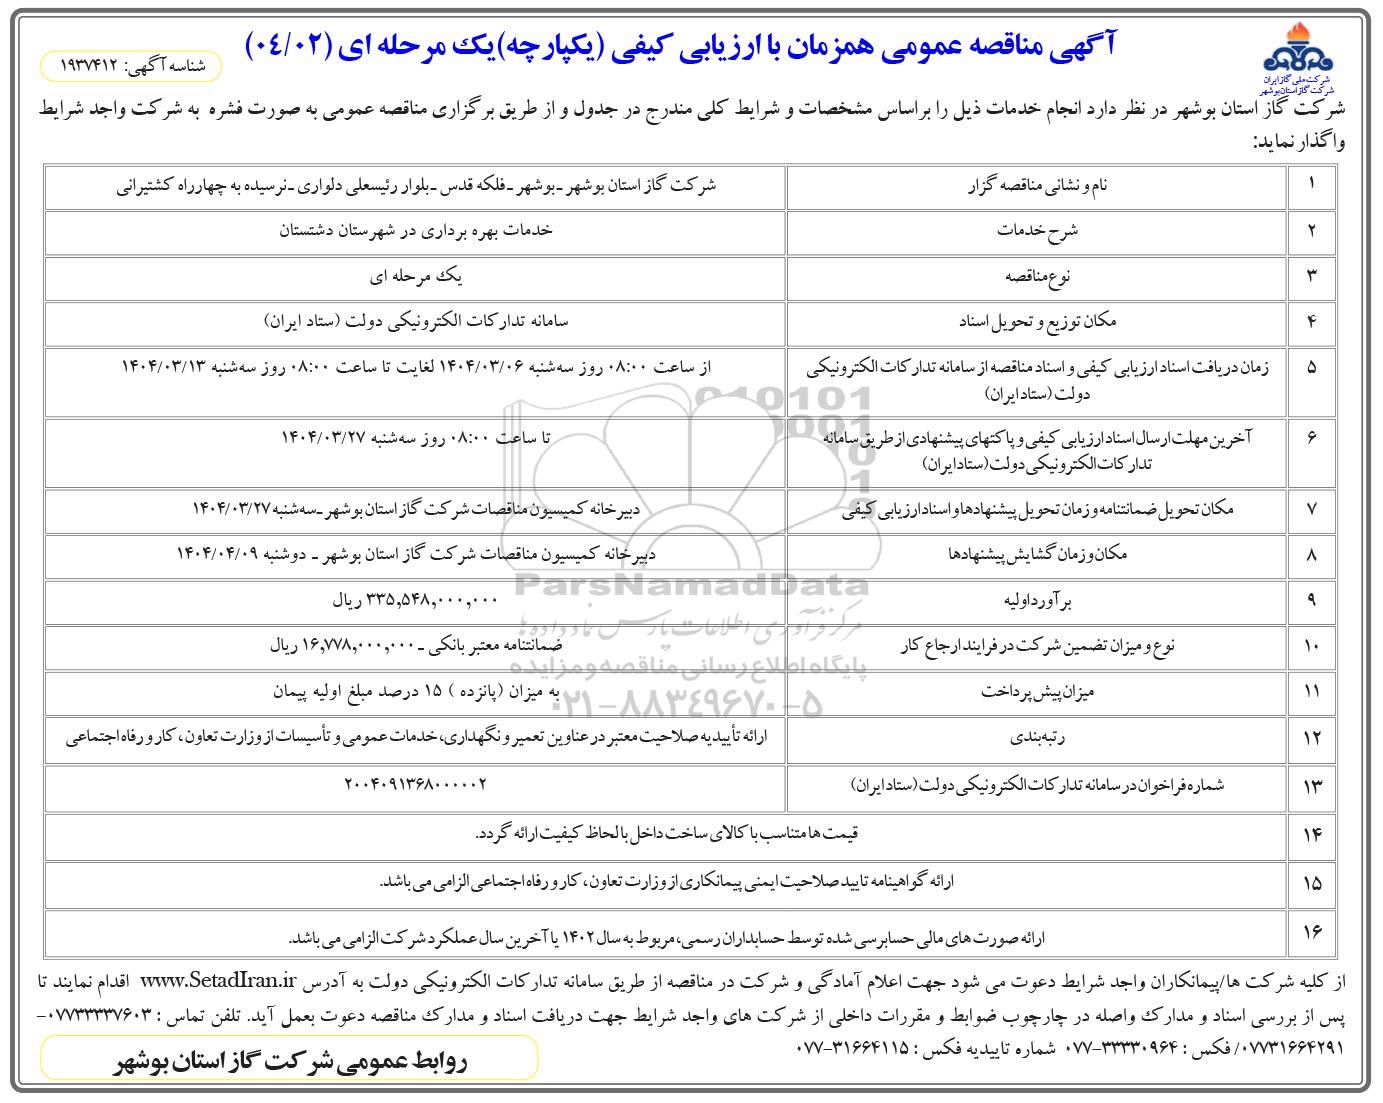 آگهی مناقصه عمومی همزمان با ارزیابی کیفی (یکپارچه)یک مرحله ای (۰۴/۰۲)
شناسه آگهی: ۱۹۳۷۴۱۲
شرکت ملی گاز ایران
شرکت گاز استان بوشهر
شرکت گاز استان بوشهر در نظر دارد انجام خدمات ذیل را براساس مشخصات و شرایط کلی مندرج در جدول و از طریق برگزاری مناقصه عمومی به صورت فشره به شرکت واجد شرایط
واگذار نماید:
۱ نام و نشانی مناقصه گزار شرکت گاز استان بوشهر ـ بوشهر ـ فلکه قدس ـ بلوار رئیسعلی دلواری ـ نرسیده به چهارراه کشتیرانی
۲ شرح خدمات خدمات بهره برداری در شهرستان دشتستان
۳ نوع مناقصه یک مرحله ای
۴ مکان توزیع و تحویل اسناد سامانه تدارکات الکترونیکی دولت (ستاد ایران)
۵ زمان دریافت اسناد ارزیابی کیفی و اسناد مناقصه از سامانه تدارکات الکترونیکی
دولت (ستاد ایران)
از ساعت ۰۸:۰۰ روز سه‌شنبه ۱۴۰۴/۰۳/۰۶ لغایت تا ساعت ۰۸:۰۰ روز سه‌شنبه ۱۴۰۴/۰۳/۱۳
۶ آخرین مهلت ارسال اسناد ارزیابی کیفی و پاکتهای پیشنهادی از طریق سامانه
تدارکات الکترونیکی دولت (ستاد ایران)
تا ساعت ۰۸:۰۰ روز سه‌شنبه ۱۴۰۴/۰۳/۲۷
۷ مکان تحویل ضمانتنامه و زمان تحویل پیشنهادها و اسناد ارزیابی کیفی دبیرخانه کمیسیون مناقصات شرکت گاز استان بوشهر ـ سه‌شنبه ۱۴۰۴/۰۳/۲۷
۸ مکان و زمان گشایش پیشنهادها دبیرخانه کمیسیون مناقصات شرکت گاز استان بوشهر ـ دوشنبه ۱۴۰۴/۰۴/۰۹
۹ برآورد اولیه ۳۳۵,۵۴۸,۰۰۰,۰۰۰ ریال
۱۰ نوع و میزان تضمین شرکت در فرایند ارجاع کار ضمانتنامه معتبر بانکی ـ ۱۶,۷۷۸,۰۰۰,۰۰۰ ریال
۱۱ میزان پیش پرداخت به میزان (پانزده ) ۱۵ درصد مبلغ اولیه پیمان
۱۲ رتبه‌بندی ارائه تأییدیه صلاحیت معتبر در عناوین تعمیر و نگهداری، خدمات عمومی و تأسیسات از وزارت تعاون، کار و رفاه اجتماعی
۱۳ شماره فراخوان در سامانه تدارکات الکترونیکی دولت (ستاد ایران) ۲۰۰۴۰۹۱۳۶۸۰۰۰۰۰۲
۱۴ قیمت ها متناسب با کالای ساخت داخل با لحاظ کیفیت ارائه گردد.
۱۵ ارائه گواهینامه تایید صلاحیت ایمنی پیمانکاری از وزارت تعاون، کار و رفاه اجتماعی الزامی می باشد.
۱۶ ارائه صورت های مالی حسابرسی شده توسط حسابداران رسمی، مربوط به سال ۱۴۰۲ یا آخرین سال عملکرد شرکت الزامی می باشد.
ParsNamadData
مرکز فرآوری اطلاعات پارس نماد داده ها
پایگاه اطلاع رسانی مناقصه و مزایده
۰۲۱-۸۸۳۴۹۶۷۰-۵
از کلیه شرکت ها/پیمانکاران واجد شرایط دعوت می شود جهت اعلام آمادگی و شرکت در مناقصه از طریق سامانه تدارکات الکترونیکی دولت به آدرس www.SetadIran.ir اقدام نمایند تا
پس از بررسی اسناد و مدارک واصله در چارچوب ضوابط و مقررات داخلی از شرکت های واجد شرایط جهت دریافت اسناد و مدارک مناقصه دعوت بعمل آید. تلفن تماس : ۰۷۷۳۳۳۳۷۶۰۳-
۰۷۷۳۱۶۶۴۲۹۱/ فکس : ۳۳۳۳۰۹۶۴-۰۷۷ شماره تاییدیه فکس : ۳۱۶۶۴۱۱۵-۰۷۷
روابط عمومی شرکت گاز استان بوشهر